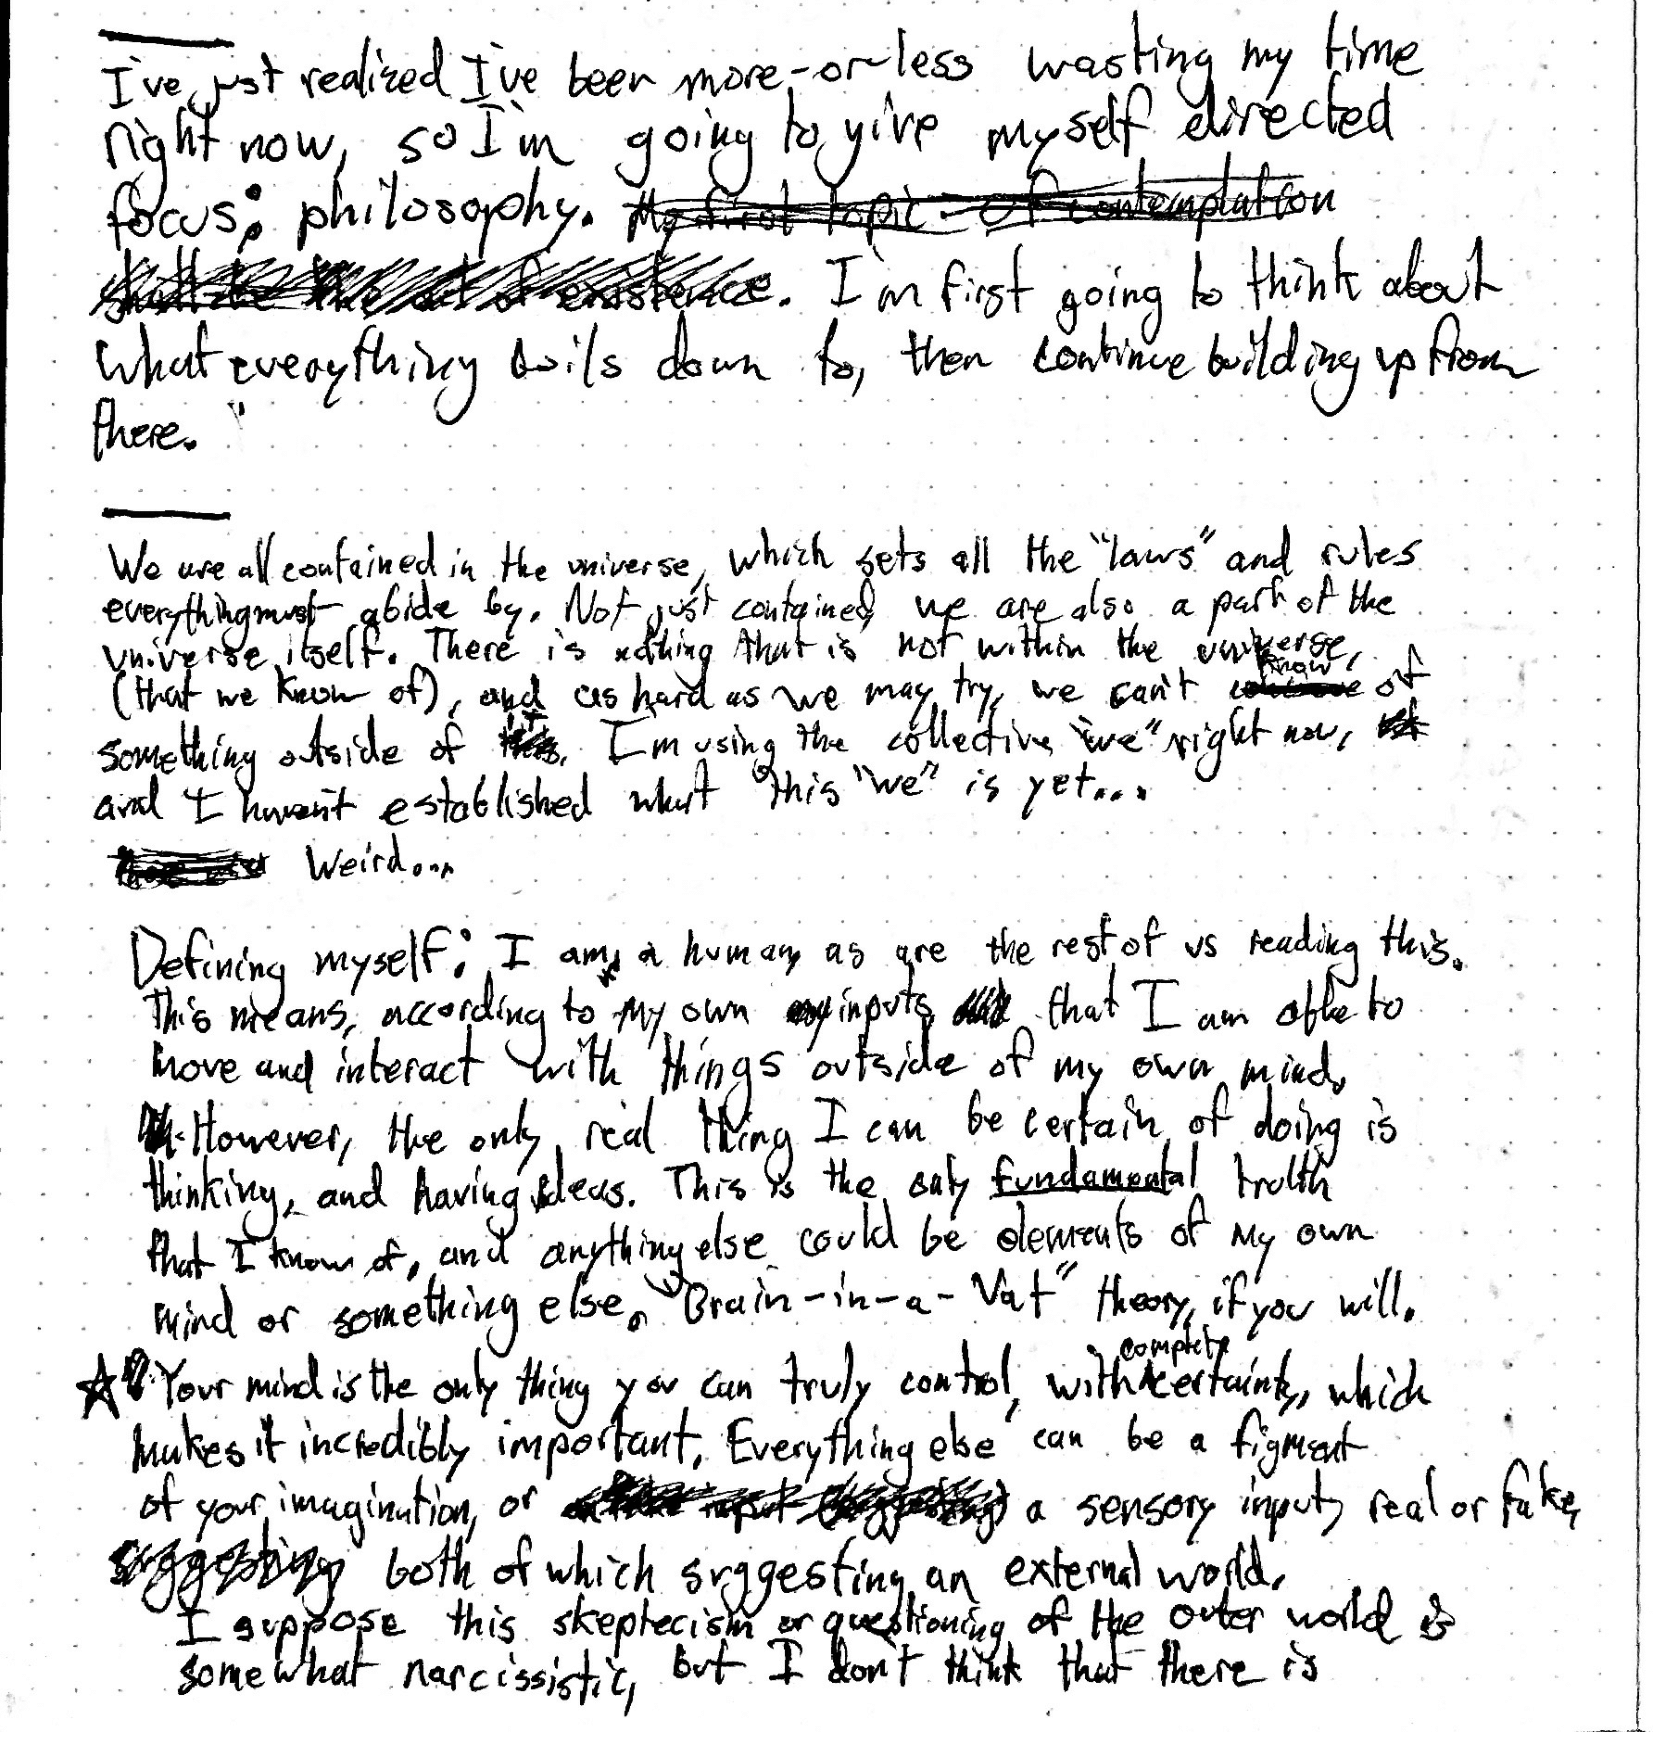 I've just realized I've been more-or-less wasting my time
right now, so I'm going to give myself directed
focus: philosophy. My first topic of contemplation
of existence. I'm first going to think about
what everything boils down to, then continue building up from
there.
We are all contained in the universe, which sets all the "laws" and rules
everything must abide by. Not just contained, we are also a part of the
universe itself. There is nothing that is not within the universe,
(that we know of), and as hard as we may try, we can't know of
something outside of it. I'm using the collective "we" right now,
and I haven't established what this "we" is yet...
Weird...
Defining myself: I am a human, as are the rest of us reading this.
This means, according to my own inputs, that I am able to
move and interact with things outside of my own mind.
However, the only real thing I can be certain of doing is
thinking, and having ideas. This is the only fundamental truth
that I know of, and anything else could be elements of my own
mind or something else. "Brain-in-a-Vat" theory, if you will.
Your mind is the only thing you can truly control, with complete certainty, which
makes it incredibly important. Everything else can be a figment
of your imagination, or a sensory input, real or fake,
suggesting both of which suggesting an external world.
I suppose this skeptecism or questioning of the outer world is
somewhat narcissistic, but I don't think that there is